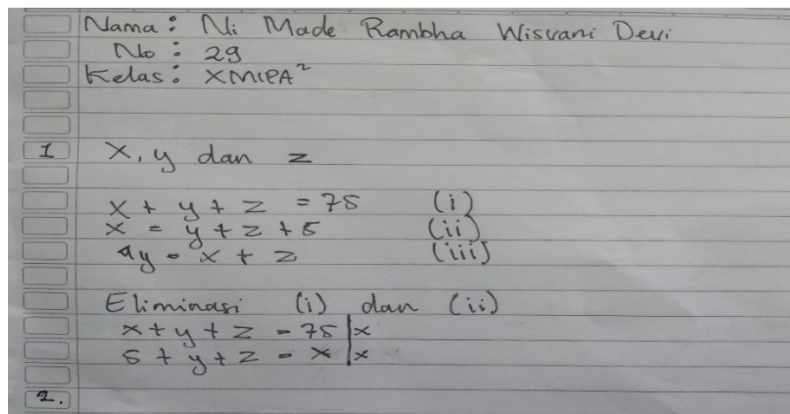 Nama : Ni Made Rambha Wisvani Devi
No : 29
Kelas : XMIPA²
1 X, y dan z
x + y + z = 75 (i)
x = y + z + 5 (ii)
4y = x + z (iii)
Eliminasi (i) dan (ii)
x + y + z = 75 | x
5 + y + z = x | x
2.